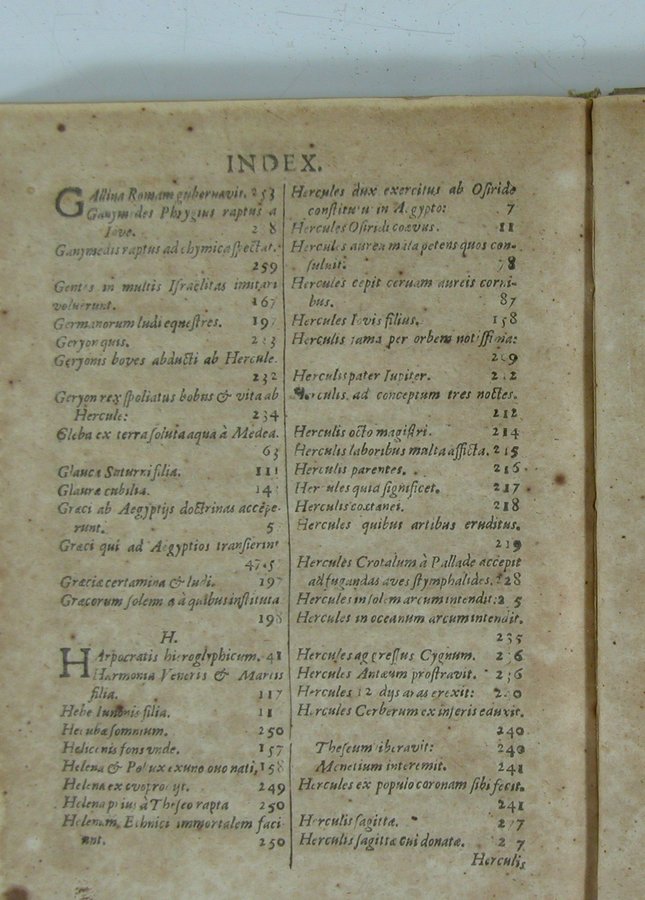 INDEX.
Gallina Romam gubernavit. 253
Ganymedes Phrygius raptus a
Iove.
Ganymedis raptus ad chymica spectat.
259
Gentes in multis Israelitas imitari
voluerunt. 167
Germanorum ludi equestres. 197
Geryon quis.
Geryonis boves abducti ab Hercule.
232
Geryon rex spoliatus bobus & vita ab
Hercule: 234
Gleba ex terra soluta aqua à Medea.
63
Glauca Saturni filia. 111
Glauræ cubilia.
Græci ab Aegyptijs doctrinas accepe-
runt. 5
Græci qui ad Aegyptios transierint
47.5
Græcia certamina & ludi. 197
Græcorum solennia à quibus instituta
198
H.
Harpocratis hieroglyphicum. 41
Harmonia Veneris & Martis
filia. 117
Hebe Iunonis filia.
Hecubæ somnium. 250
Heliconis fons unde. 157
Helena & Pollux ex uno ovo nati, 158
Helena ex ovo prodijt. 249
Helena prius à Theseo rapta 250
Helenam Ethnici immortalem faci-
unt. 250
Hercules dux exercitus ab Osiride
constitutu in Aegypto: 7
Hercules Osiridi coævus. 11
Hercules aurea mala petens quos con-
suluit. 78
Hercules cepit cervam aureis corni-
bus. 87
Hercules Iovis filius. 158
Hercules fama per orbem notissima:
209
Herculis pater Iupiter. 212
Herculis ad conceptum tres noctes.
212
Herculis octo magistri. 214
Herculis laboribus multa afficta. 215
Herculis parentes. 216
Hercules quid significet. 217
Herculis coætanei. 218
Hercules quibus artibus eruditus.
219
Hercules Crotalum à Pallade accepit
ad fugandas aves stymphalides. 228
Hercules in solem arcum intendit: 235
Hercules in oceanum arcum intendit.
235
Hercules aggressus Cygnum. 236
Hercules Antæum prostravit. 236
Hercules 12 dys aras erexit:
Hercules Cerberum ex inferis eduxit.
240
Theseum liberavit: 240
Menetium interemit. 241
Hercules ex populo coronam sibi fecit.
241
Herculis sagittæ.
Herculis sagittæ cui donatæ.
Herculis